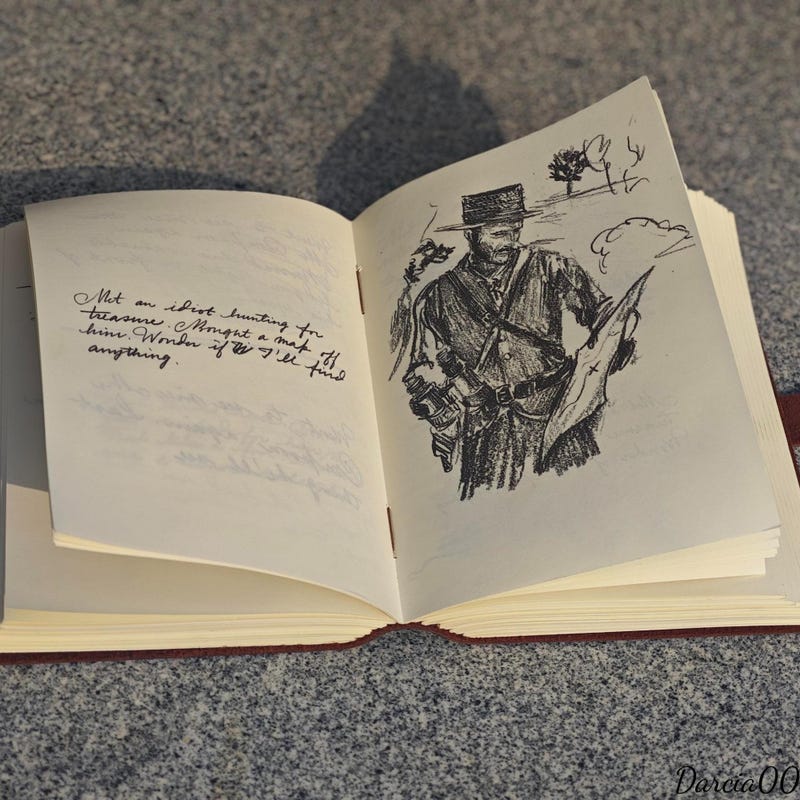 Met an idiot hunting for
treasure. Bought a map off
him. Wonder if I'll find
anything.
Darcia00